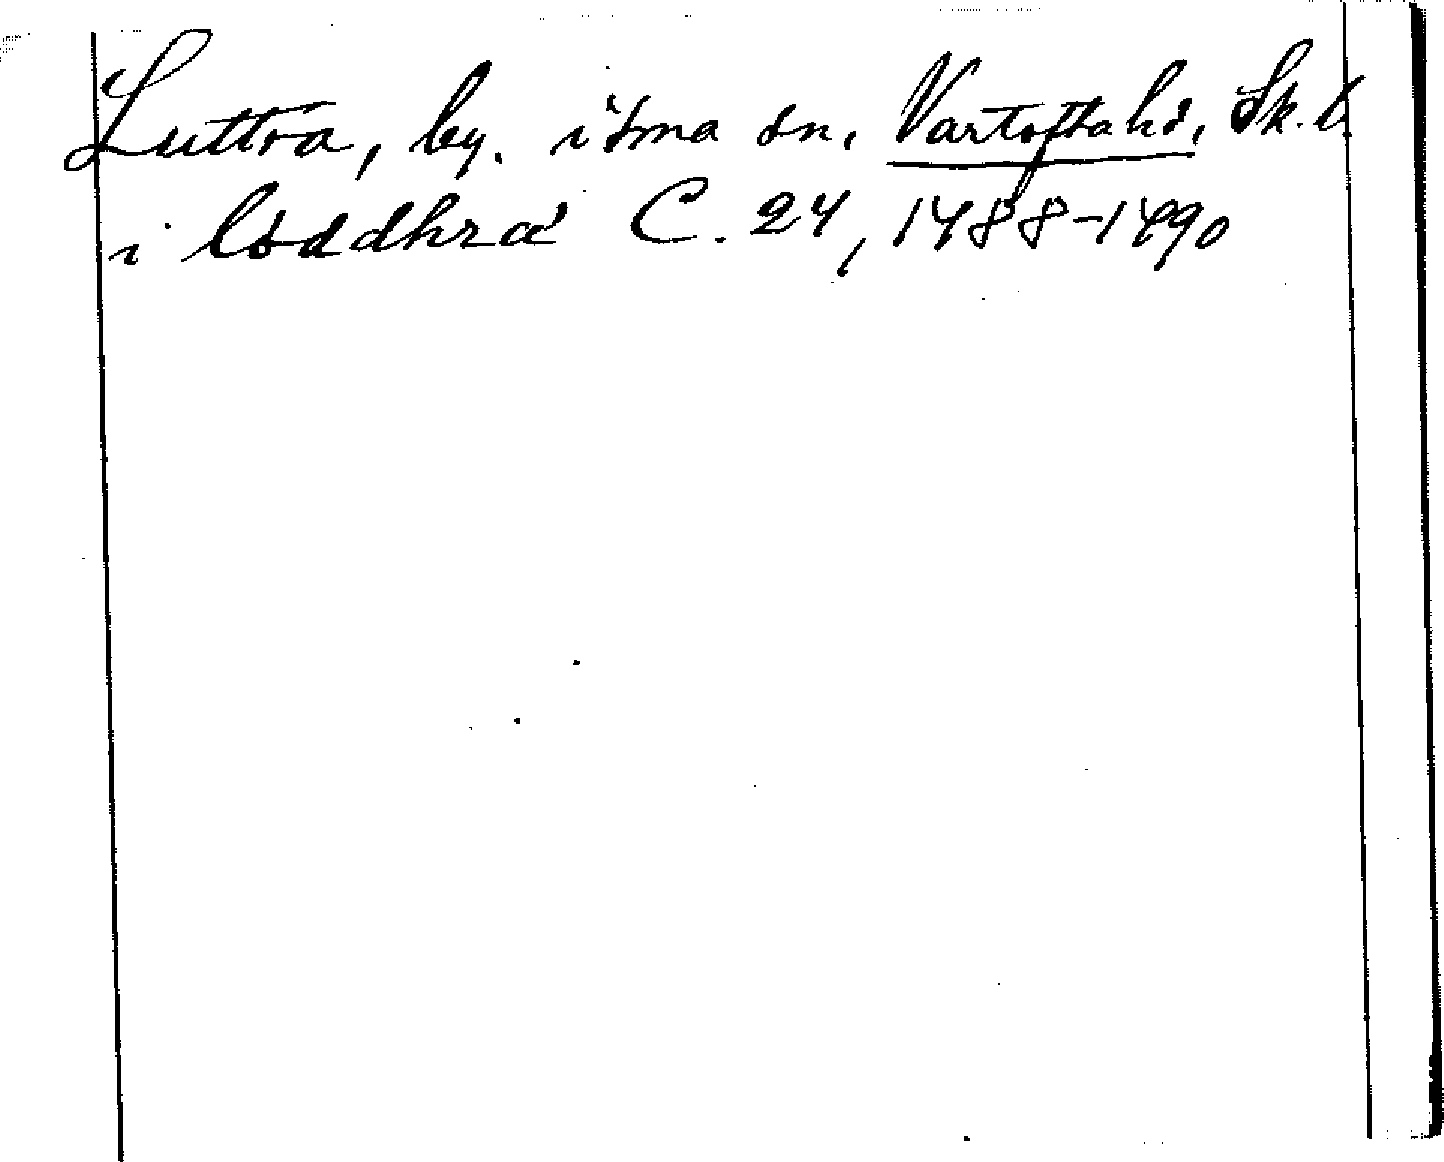 Luttra, by. i sma sn, Vartofta hd, Sk. l
i loddhra C. 24, 1488-1490